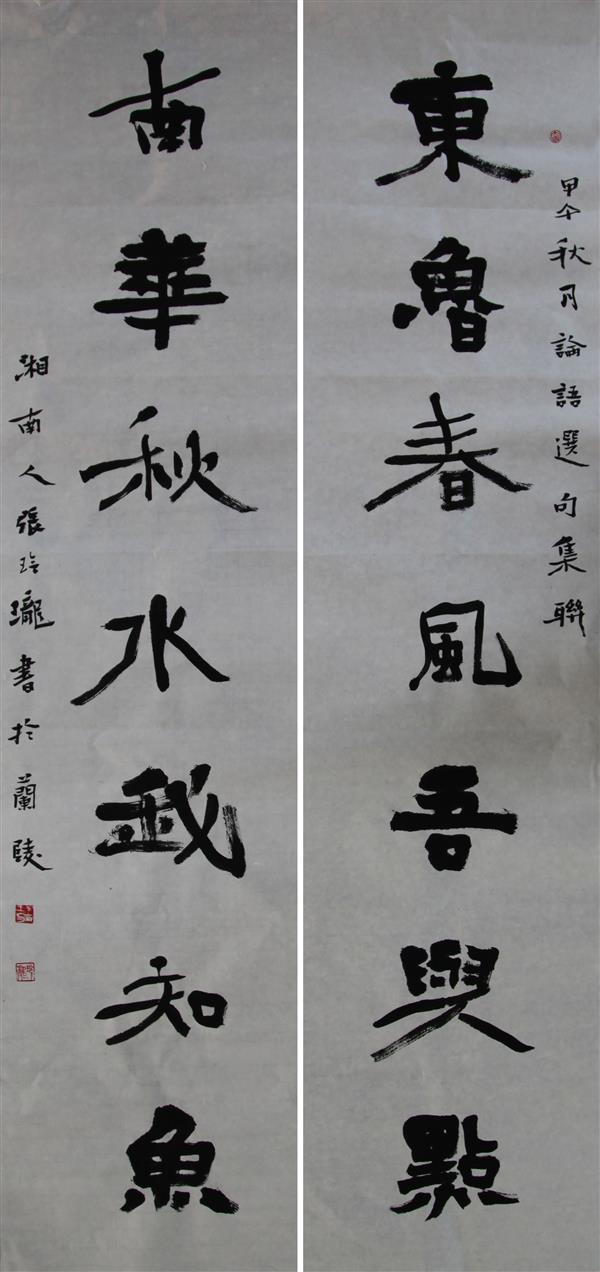 甲午秋月論語選句集聯
東魯春風吾與點
南華秋水我知魚
湘南人張玲瓏書於蘭陵